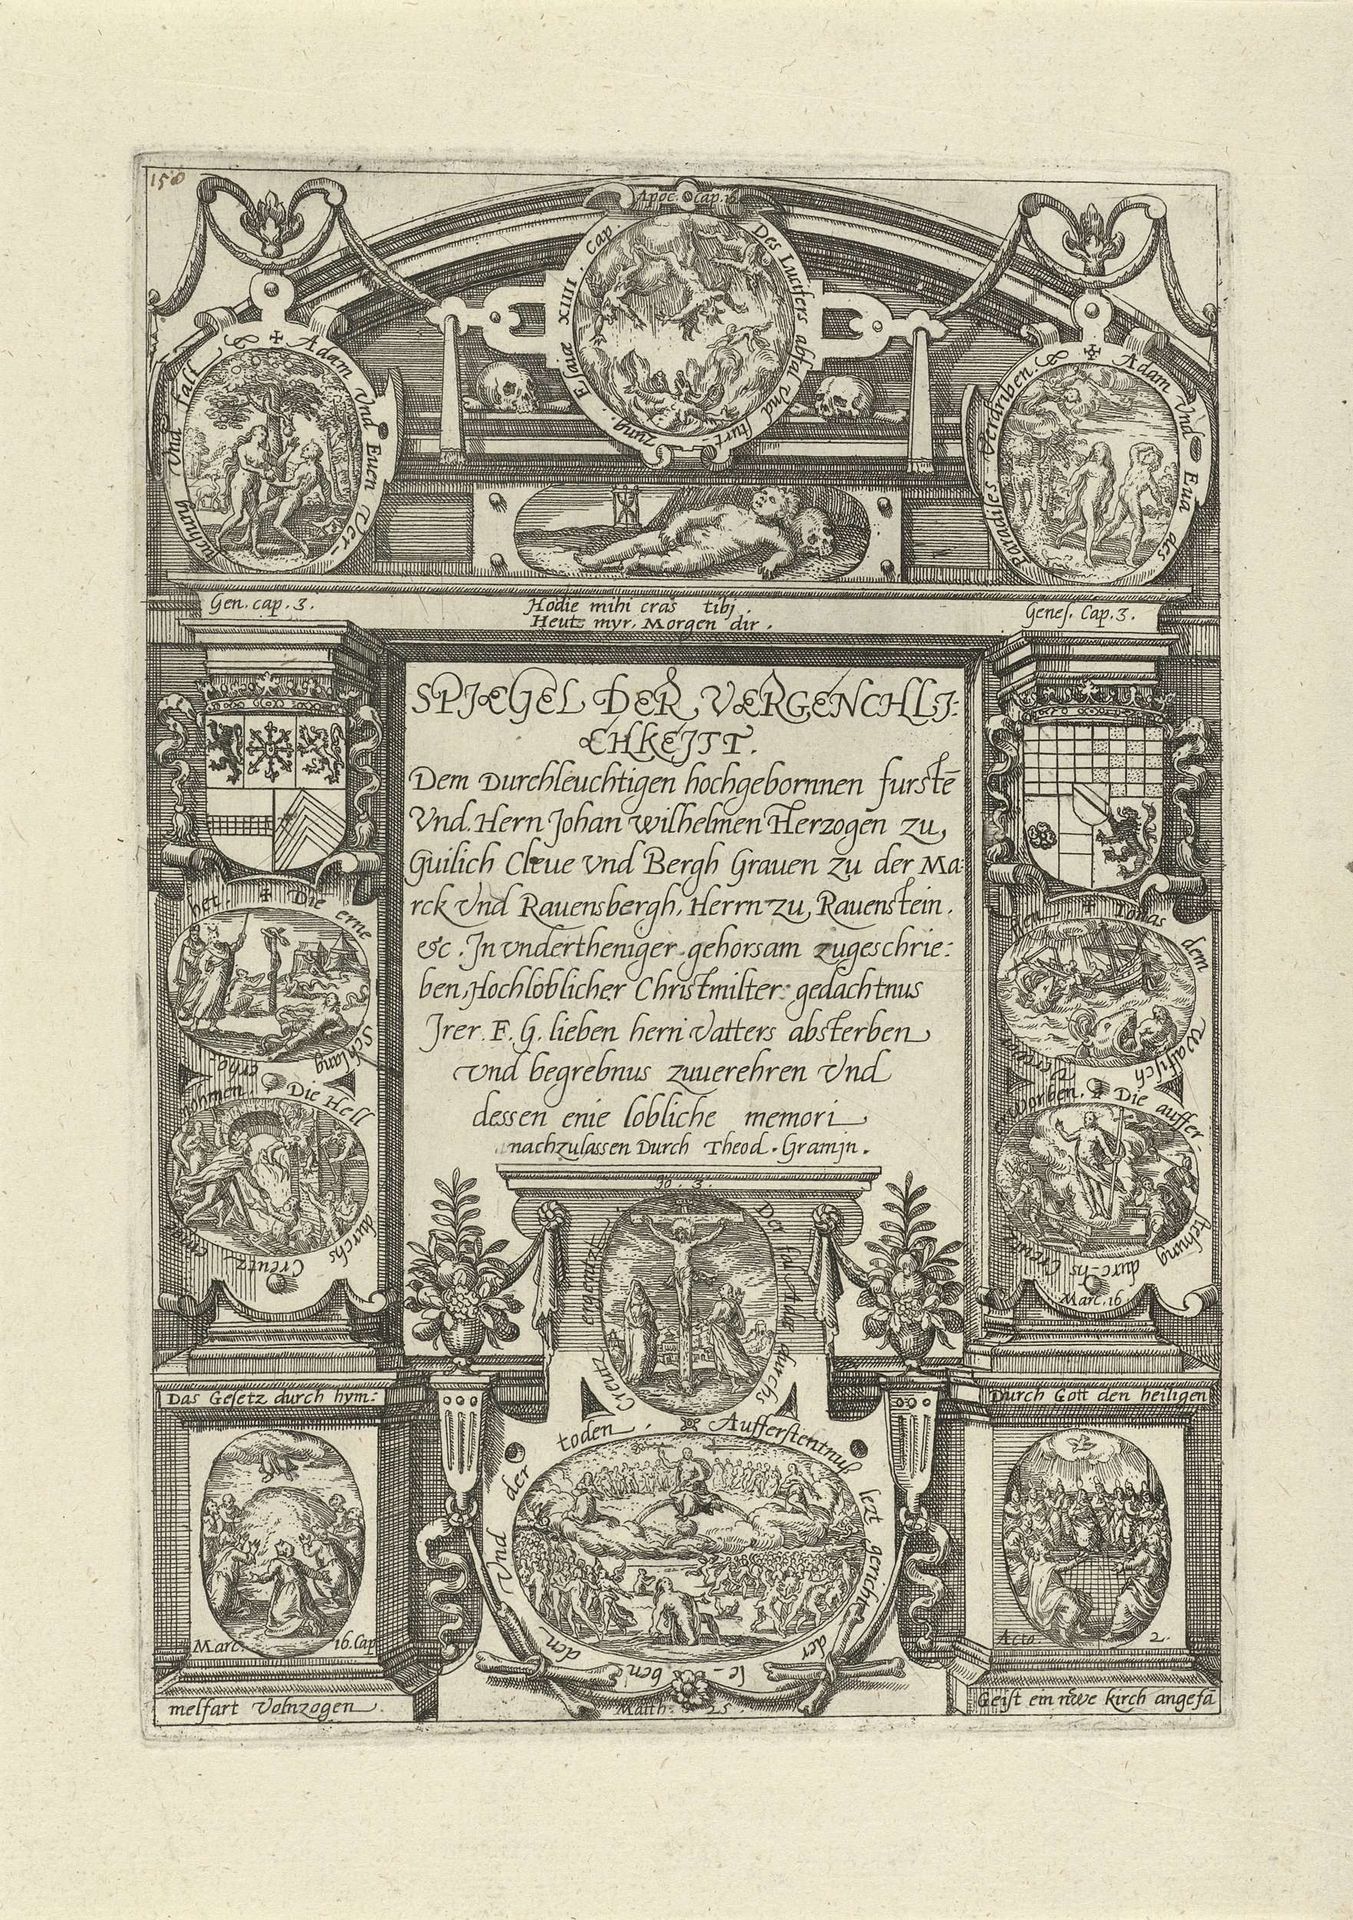 150
Apoc. cap. 12
Esaiæ XIIII. Cap.
Des Lucifers abfal Vnd furt-
zung
Adam Vnd Euen Ver-
fuhrung Vnd fall
Adam Vnd Eua des
Paradises Verdriben
Gen. cap. 3.
Hodie mihi cras tibj.
Heute myr, Morgen dir.
Genes. Cap. 3.
SPIÆGEL DER VERGENCHLIJ:
CHKEJTT.
Dem Durchleuchtigen hochgebornnen furstē
Vnd. Hern Johan Wilhelmen Herzogen zu
Guilich Cleue Vnd Bergh Grauen zu der Ma:
rck Vnd Rauensbergh, Herrn zu, Rauenstein.
etc. Jn Vndertheniger gehorsam zugeschrie:
ben, Hochloblicher Christmilter gedachtnus
Jrer. F. G. lieben hern Vatters absterben
Vnd begrebnus zuuerehren Vnd
dessen enie lobliche memori
nachzulassen Durch Theod. Gramjn.
Die erne
Schlang
erhg-
het.
Jonas dem
Walfisch
Die Hell
durchs
Creutz
nohmen
Die auffer-
stehung
durc-hs
Creutz
Worben.
Marc. 16
Jo. 3.
Der fal Adæ durchs
Creutz
Das Gesetz durch hym:
Durch Gott den heiligen
Aufferstentnus
lezt gericht der
le-ben
den
Vnd der
toden
Marc. 16. Cap
Acto 2.
melfart Volnzogen
Matth. 25.
Geist em nwe kirch angefā